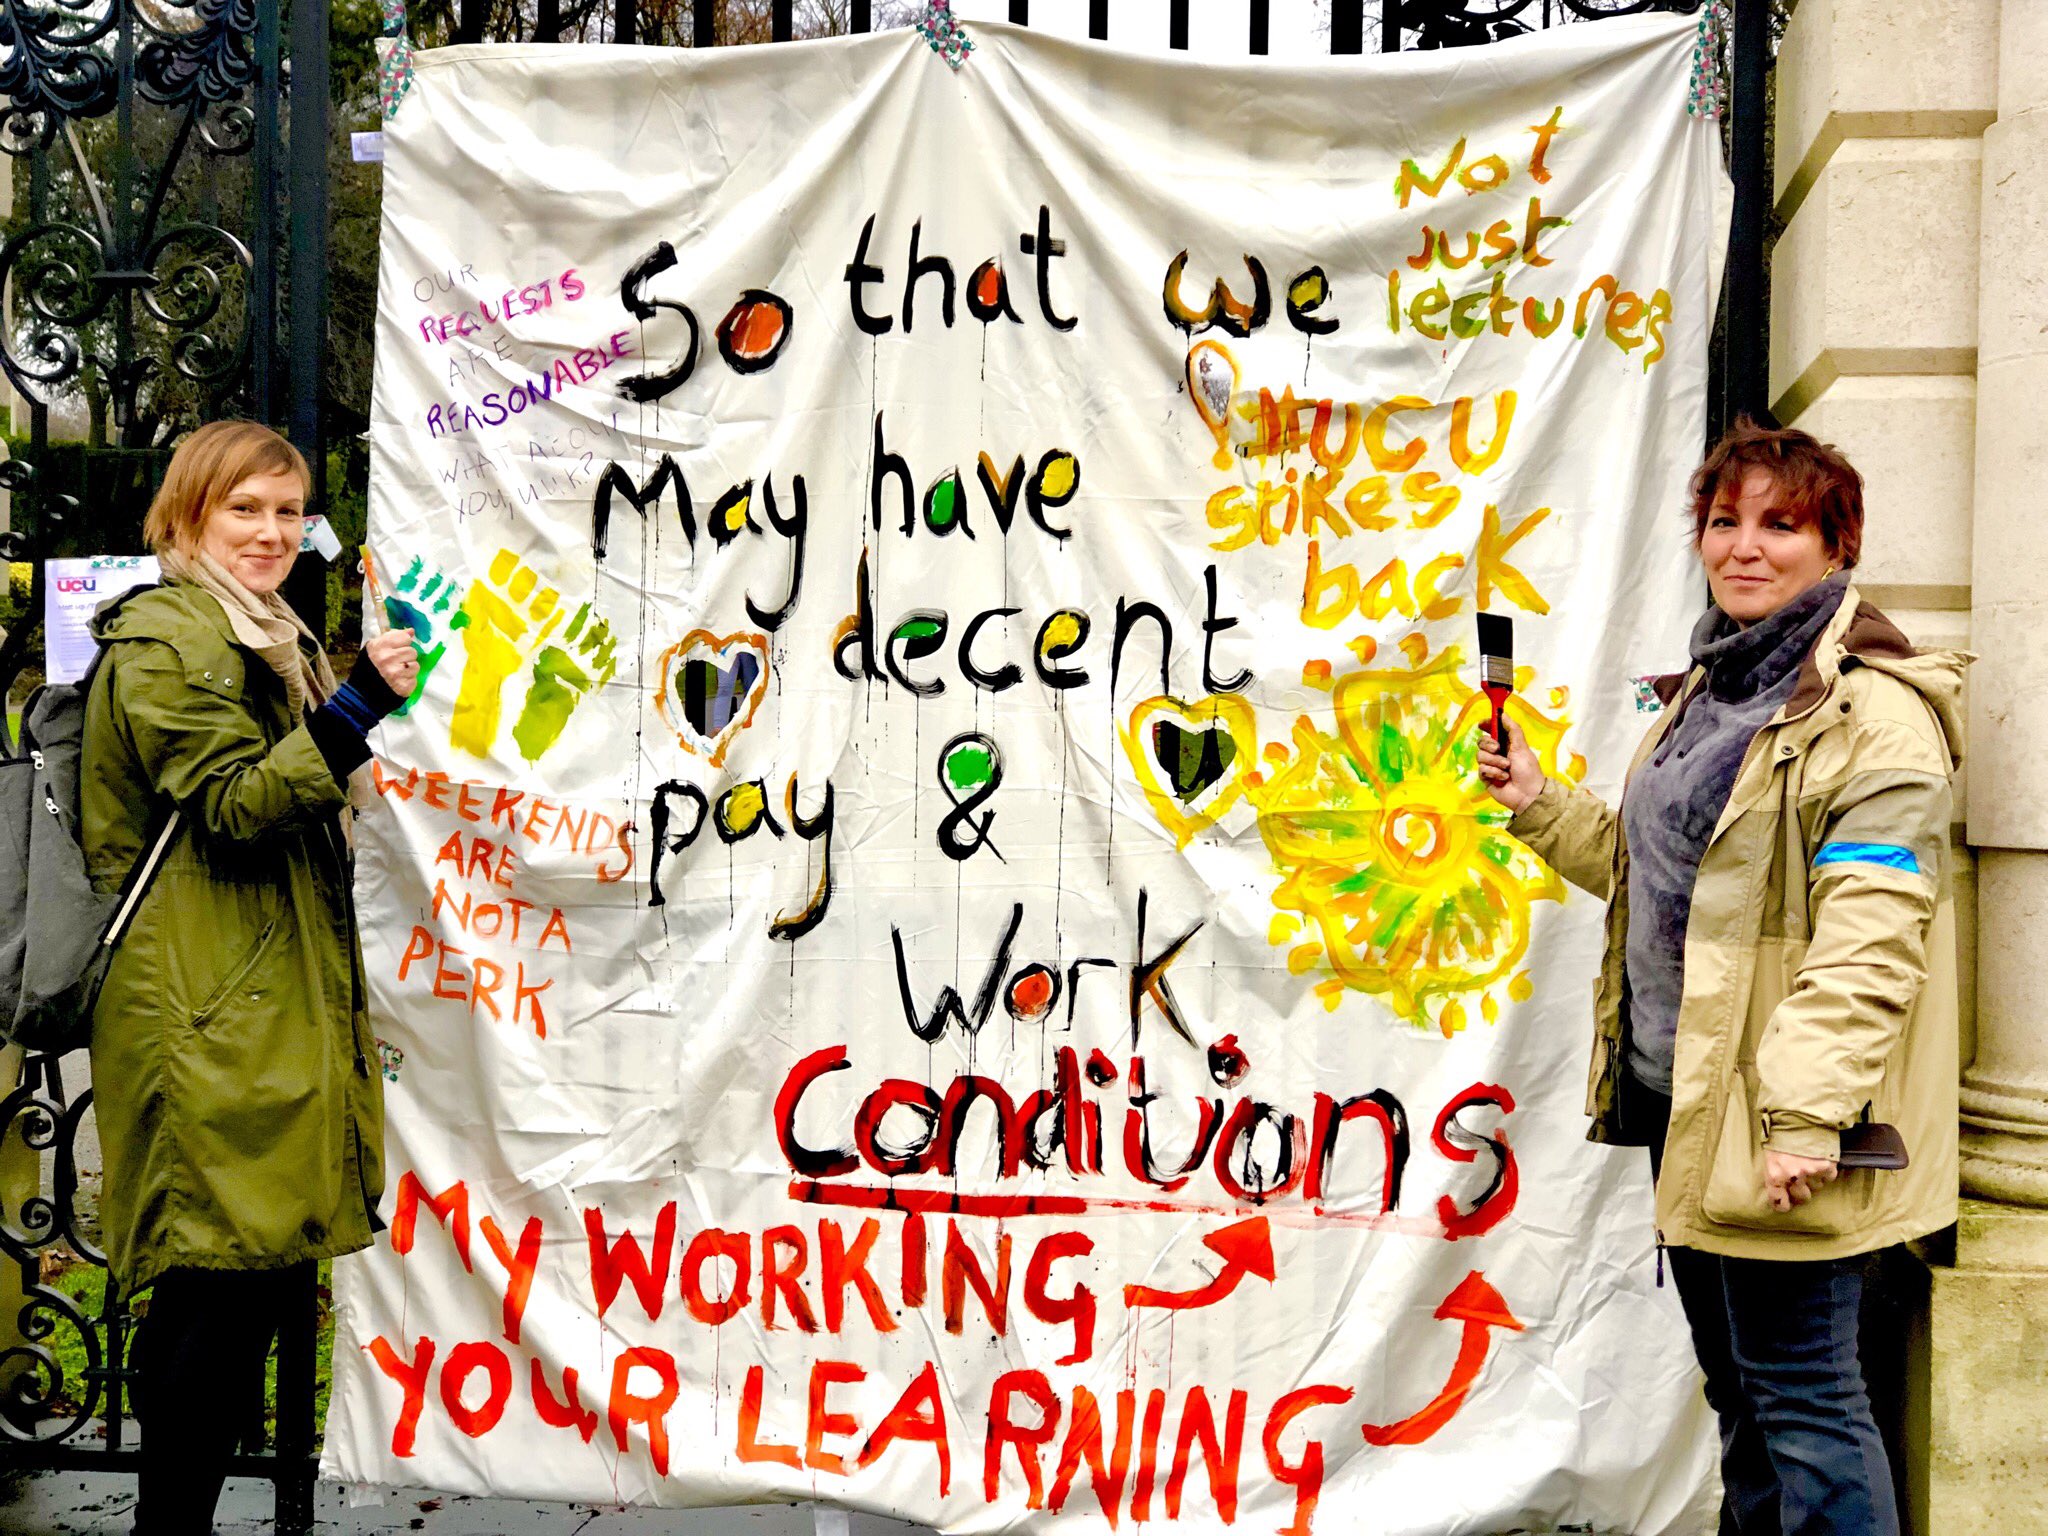 OUR
REQUESTS
ARE
REASONABLE
WHAT ABOUT
YOU, U.U.K?
So that we
May have
decent
pay &
Work
Conditions
Not
Just
lectures
#UCU
strikes
back
WEEKENDS
ARE
NOT A
PERK
MY WORKING
YOUR LEARNING
ucu